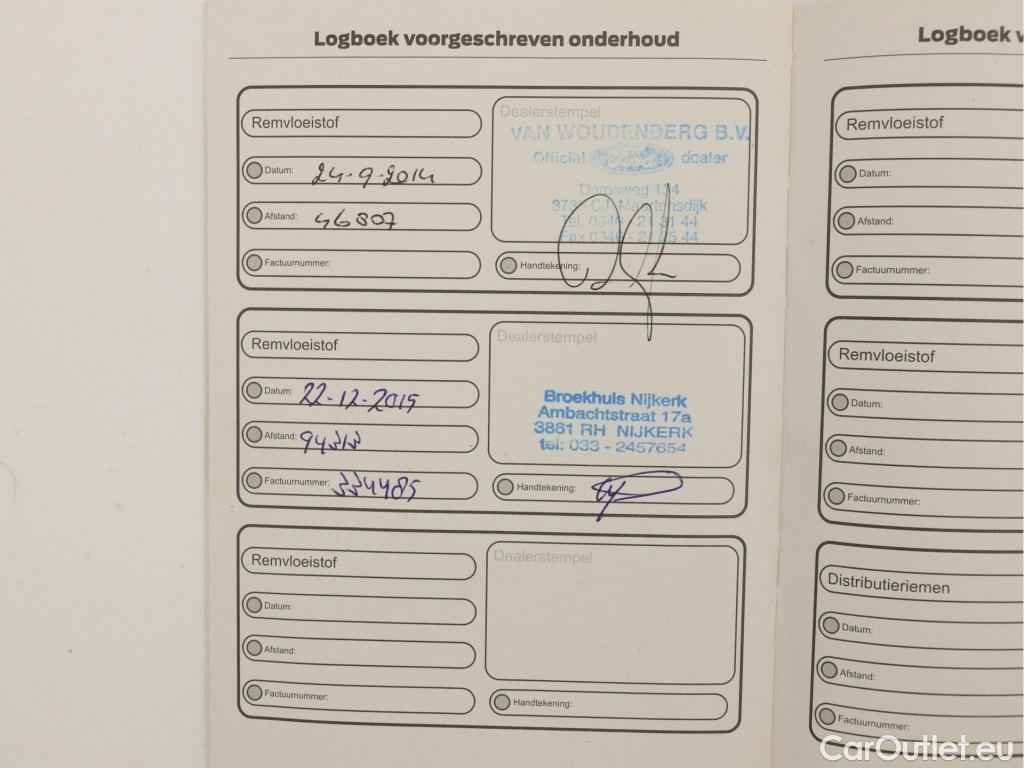 Logboek voorgeschreven onderhoud
Remvloeistof
Datum: 24-9-2014
Afstand: 46807
Factuurnummer:
Dealerstempel
VAN WOUDENBERG B.V.
Official Ford dealer
Dorpsweg 134
CJ Maartensdijk
Tel. 0346 - 21 31 44
Fax 0346 - 21 25 44
Handtekening:
Remvloeistof
Datum: 22-12-2015
Afstand:
Factuurnummer: 334485
Dealerstempel
Broekhuis Nijkerk
Ambachtstraat 17a
3861 RH NIJKERK
tel: 033 - 2457654
Handtekening:
Remvloeistof
Datum:
Afstand:
Factuurnummer:
Dealerstempel
Handtekening:
Logboek v
Remvloeistof
Datum:
Afstand:
Factuurnummer:
Remvloeistof
Datum:
Afstand:
Factuurnummer:
Distributieriemen
Datum:
Afstand:
Factuurnummer:
CarOutlet.eu